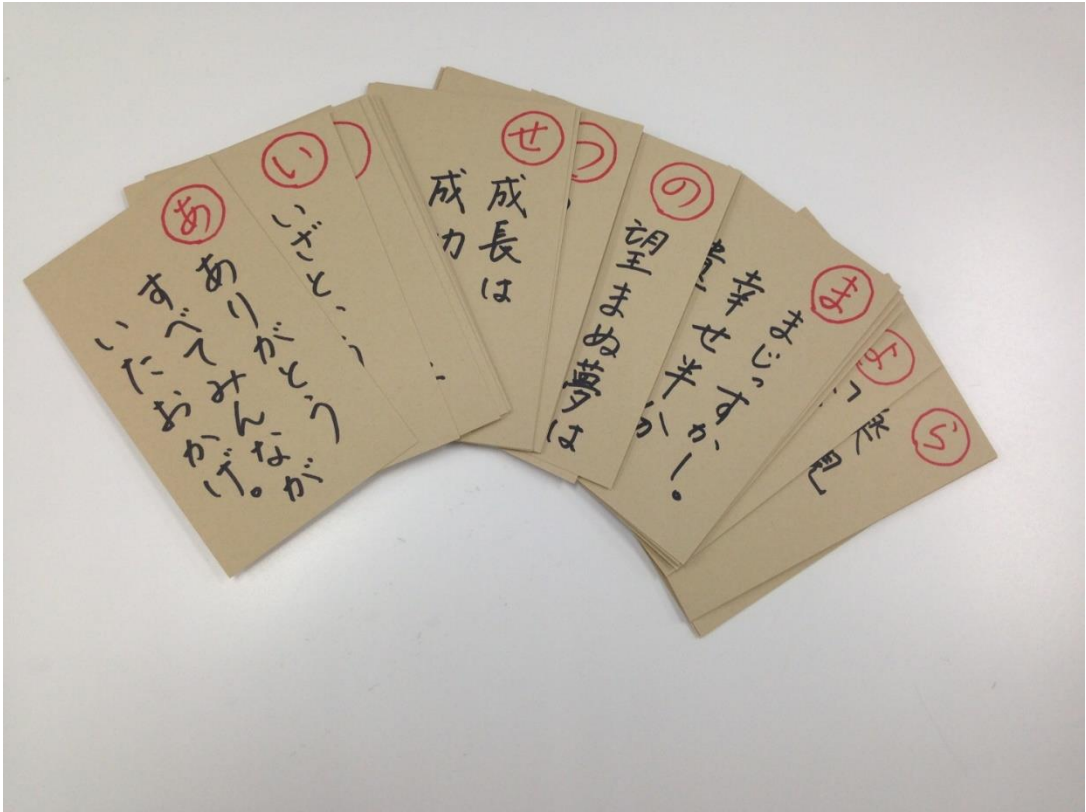 あ
ありがとう
すべてみんなが
いたおかげ。
い
いざと、
せ
成長は
成功
つ
の
望まぬ夢は
ま
まじっすか！
幸せ半分
よ
ら